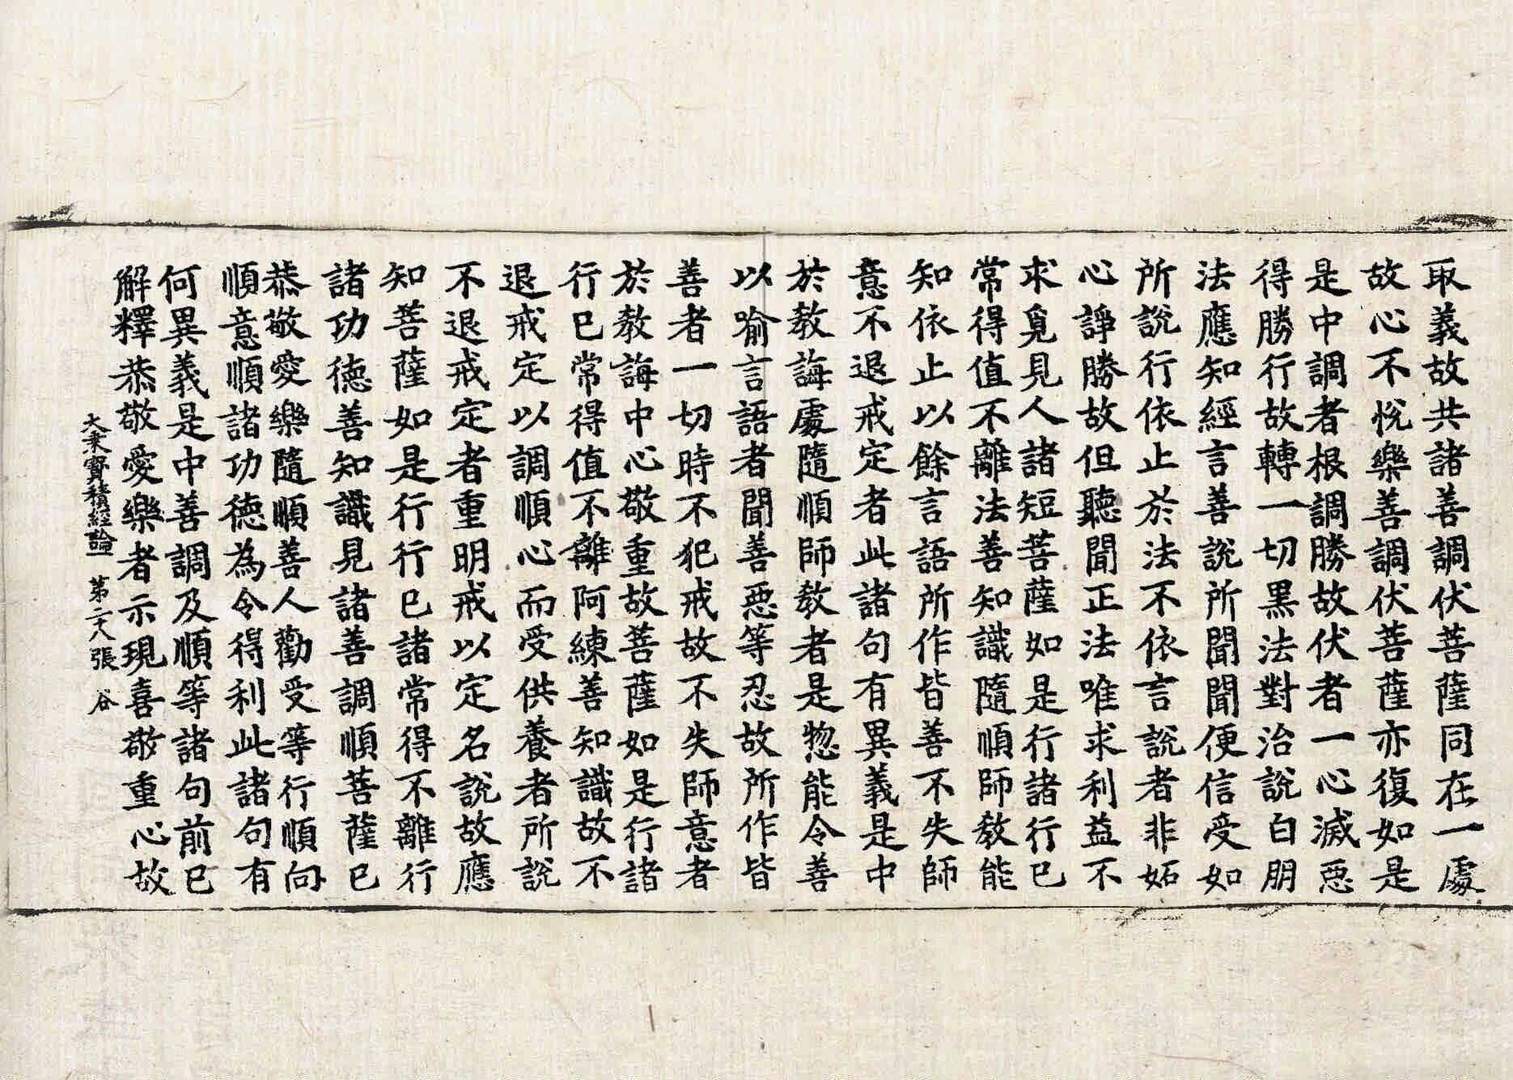 取義故共諸善調伏菩薩同在一處
故心不悅樂善調伏菩薩亦復如是
是中調者根調勝故伏者一心滅惡
得勝行故轉一切黑法對治說白朋
法應知經言善說所聞聞便信受如
所說行依止於法不依言說者非妬
心諍勝故但聽聞正法唯求利益不
求覓見人諸短菩薩如是行諸行已
常得值不離法善知識隨順師教能
知依止以餘言語所作皆善不失師
意不退戒定者此諸句有異義是中
於教誨處隨順師教者是惣能令善
以喻言語者聞善惡等忍故所作皆
善者一切時不犯戒故不失師意者
於教誨中心敬重故菩薩如是行諸
行已常得值不離阿練善知識故不
退戒定以調順心而受供養者所說
不退戒定者重明戒以定名說故應
知菩薩如是行行已諸常得不離行
諸功德善知識見諸善調順菩薩已
恭敬愛樂隨順善人勸受等行順向
順意順諸功德為令得利此諸句有
何異義是中善調及順等諸句前已
解釋恭敬愛樂者示現喜敬重心故
大乘寶積經論一 第二十八張 谷